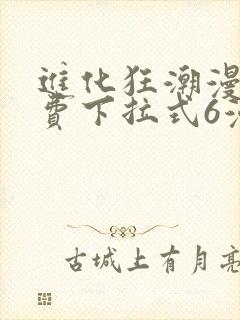 進化狂潮漫
費下拉式6
古城上有月亮